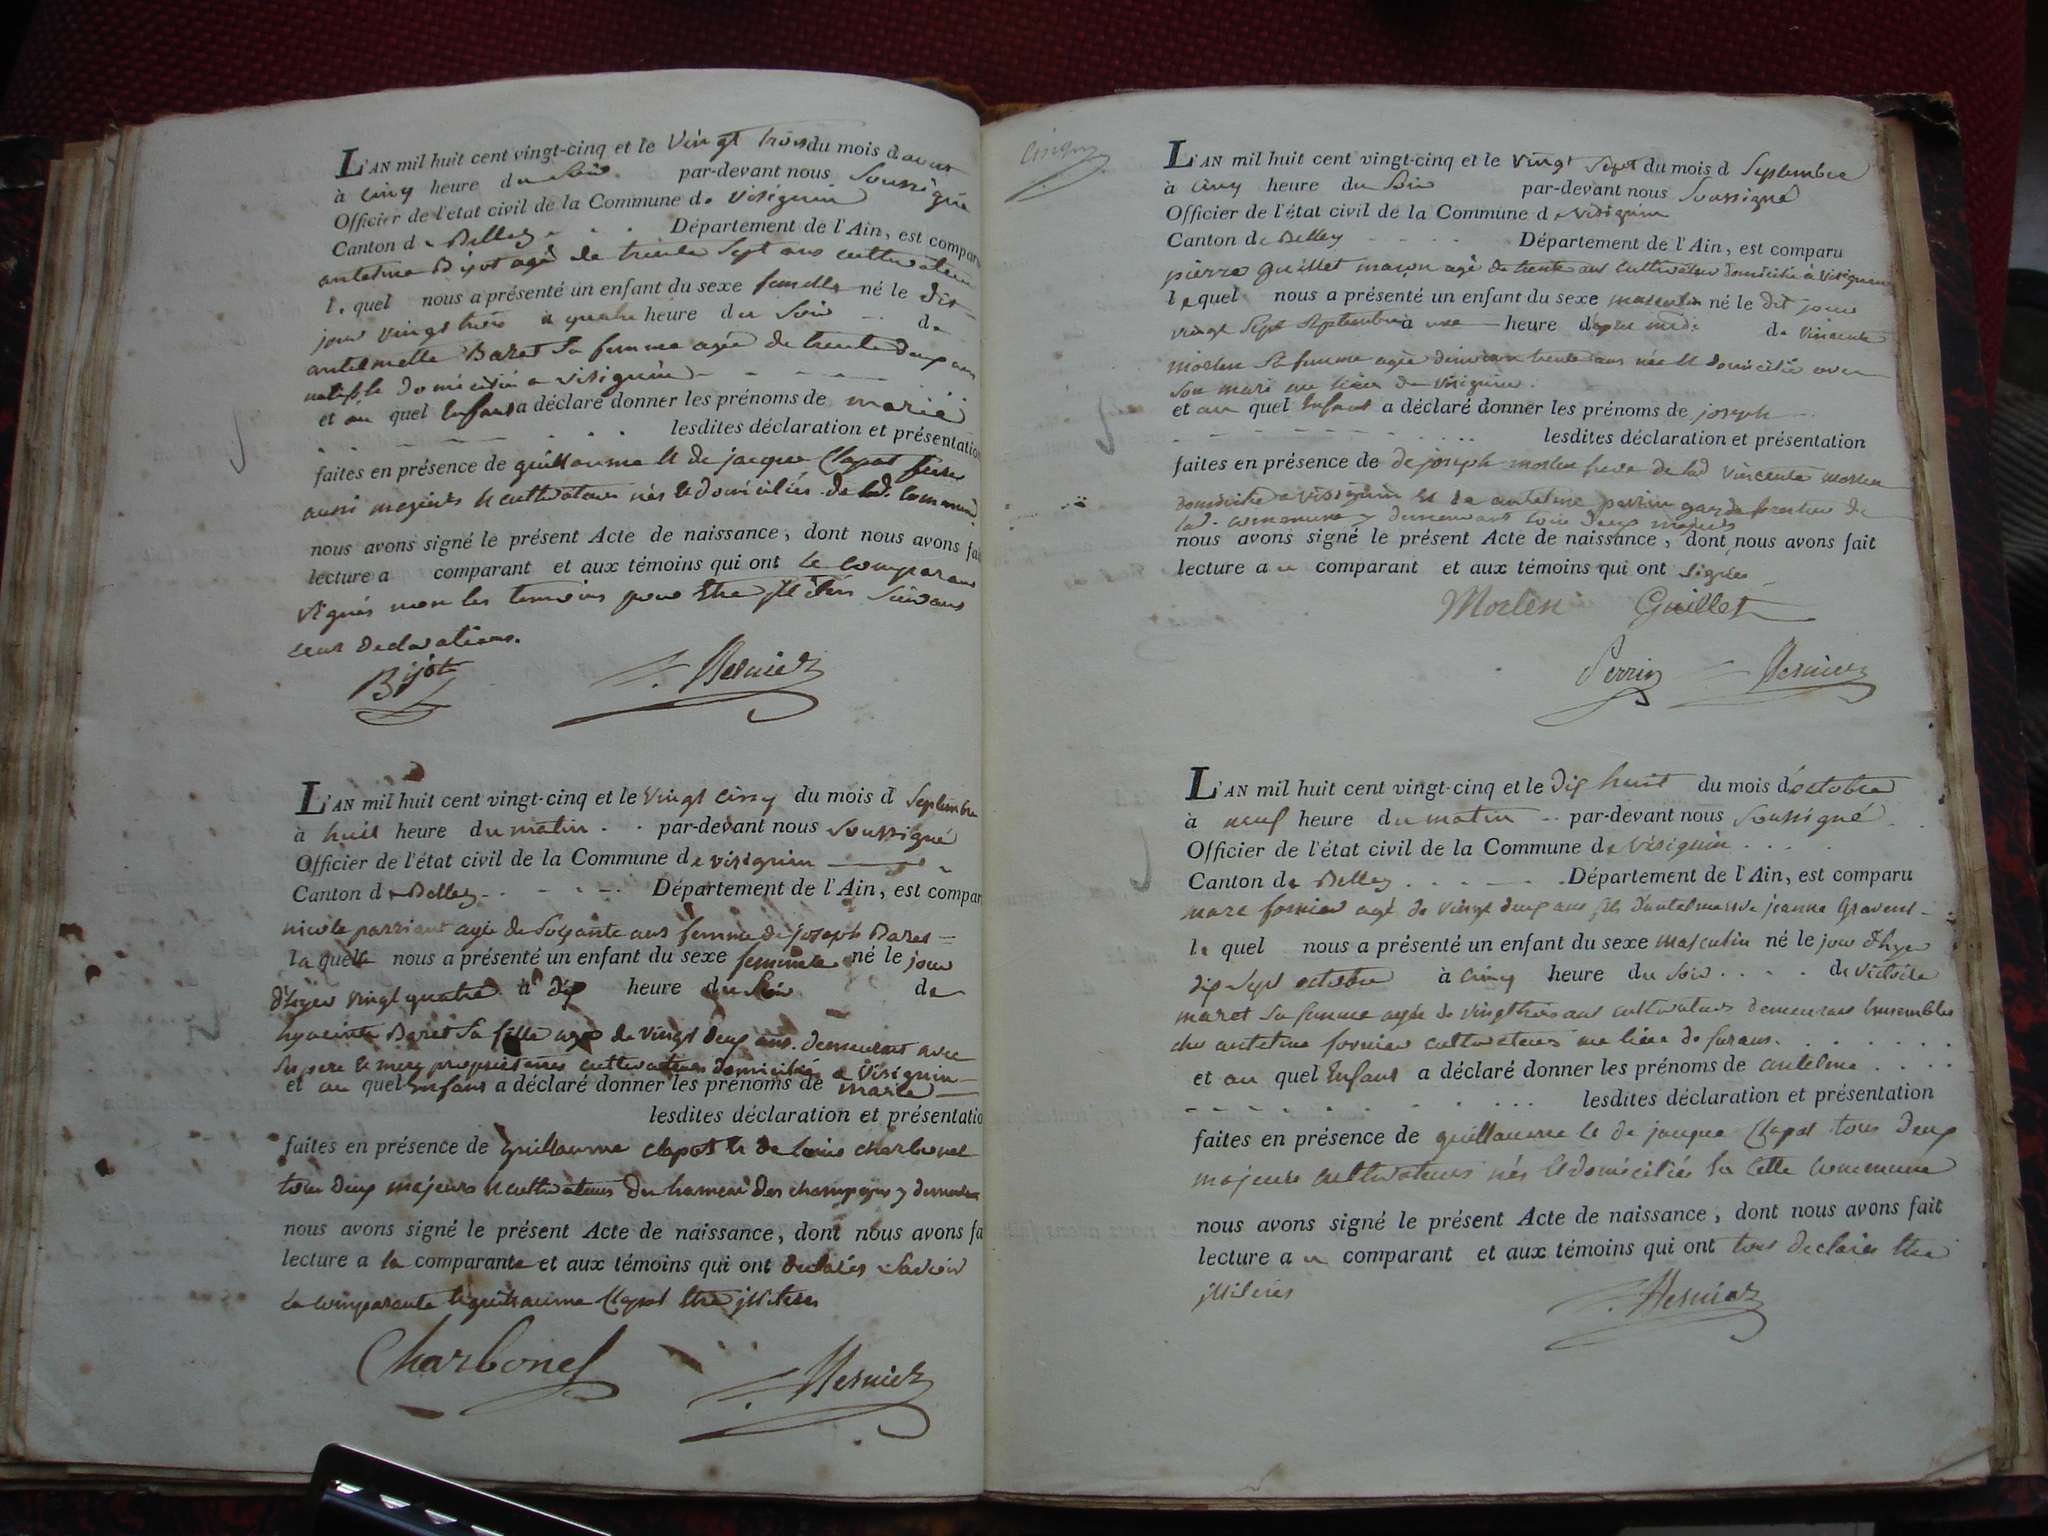 L'AN mil huit cent vingt-cinq et le Vingt trois du mois d aout
à cinq heure du Soir par-devant nous Soussigné
Officier de l'état civil de la Commune de visignin
Canton de Belley Département de l'Ain, est comparu
antelme Bijot agé de trente Sept ans cultivateur
le quel nous a présenté un enfant du sexe femelle né le dit
jour vingt trois à quatre heure du Soir de
antelmette Baret Sa femme agée de trente deux ans
domiciliée a visignin
et au quel Enfant a déclaré donner les prénoms de marie
lesdites déclaration et présentation
faites en présence de guillaume et de jacque Clapot freres
aussi majeurs et cultivateurs nés et domiciliés de lad. Commune
nous avons signé le présent Acte de naissance, dont nous avons fait
lecture a comparant et aux témoins qui ont le comparant
signés non les temoins pour Etre illitérés Suivant
leur declarations.
Bijot
L'AN mil huit cent vingt-cinq et le vingt cinq du mois d Septembre
à huit heure du matin par-devant nous Soussigné
Officier de l'état civil de la Commune de visignin
Canton de Belley Département de l'Ain, est compar
nicole parriant agée de Soixante ans femme de joseph Baret
la quelle nous a présenté un enfant du sexe femmelle né le jour
d'hyer vingt quatre à dix heure du Soir de
hyacinte Baret Sa fille agée de vingt deux ans demeurant avec
Ses pere et mere proprietaires cultivateurs domiciliés a Visignin
et au quel Enfant a déclaré donner les prénoms de marie
lesdites déclaration et présentatio
faites en présence de guillaume clapot et de Louis charbonel
tous deux majeurs et cultivateurs du hameau des champagnes y demeurant
nous avons signé le présent Acte de naissance, dont nous avons fa
lecture a la comparante et aux témoins qui ont declarés Savoir
La comparante et guillaume Clapot Etre illiteres
Charbonel
L'AN mil huit cent vingt-cinq et le vingt Sept du mois d Septembre
à cinq heure du Soir par-devant nous Soussigné
Officier de l'état civil de la Commune de visignin
Canton de Belley Département de l'Ain, est comparu
pierre guillet maçon agé de trente ans cultivateur domicilié à visignin
le quel nous a présenté un enfant du sexe masculin né le dit jour
vingt Sept Septembre à une heure d'apres midi de vincente
morlen Sa femme agée d'environ trente ans née et domiciliée avec
Son mari au lieu de visignin.
et au quel Enfant a déclaré donner les prénoms de joseph
lesdites déclaration et présentation
faites en présence de de joseph morlen frere de lad vincente morlen
domicilié a visignin et de antelme perrin garde forestier de
lad. commune y demeurant tous deux majeurs
nous avons signé le présent Acte de naissance, dont nous avons fait
lecture au comparant et aux témoins qui ont signés
Morlen Guillet
Perrin
L'AN mil huit cent vingt-cinq et le dix huit du mois d'octobre
à neuf heure du matin par-devant nous Soussigné
Officier de l'état civil de la Commune de Visignin
Canton de Belley Département de l'Ain, est comparu
marc fornier agé de vingt deux ans fils d'antelme et de jeanne
le quel nous a présenté un enfant du sexe masculin né le jour d'hyer
dix Sept octobre à cinq heure du Soir de victoire
maret Sa femme agée de vingt trois ans cultivateurs demeurant Ensembles
chez antelme fornier cultivateur au lieu de furans.
et au quel Enfant a déclaré donner les prénoms de antelme
lesdites déclaration et présentation
faites en présence de guillaume et de jacque Clapot tous deux
majeurs cultivateurs nés et domiciliés En cette commune
nous avons signé le présent Acte de naissance, dont nous avons fait
lecture au comparant et aux témoins qui ont tous declarés Etre
illitérés